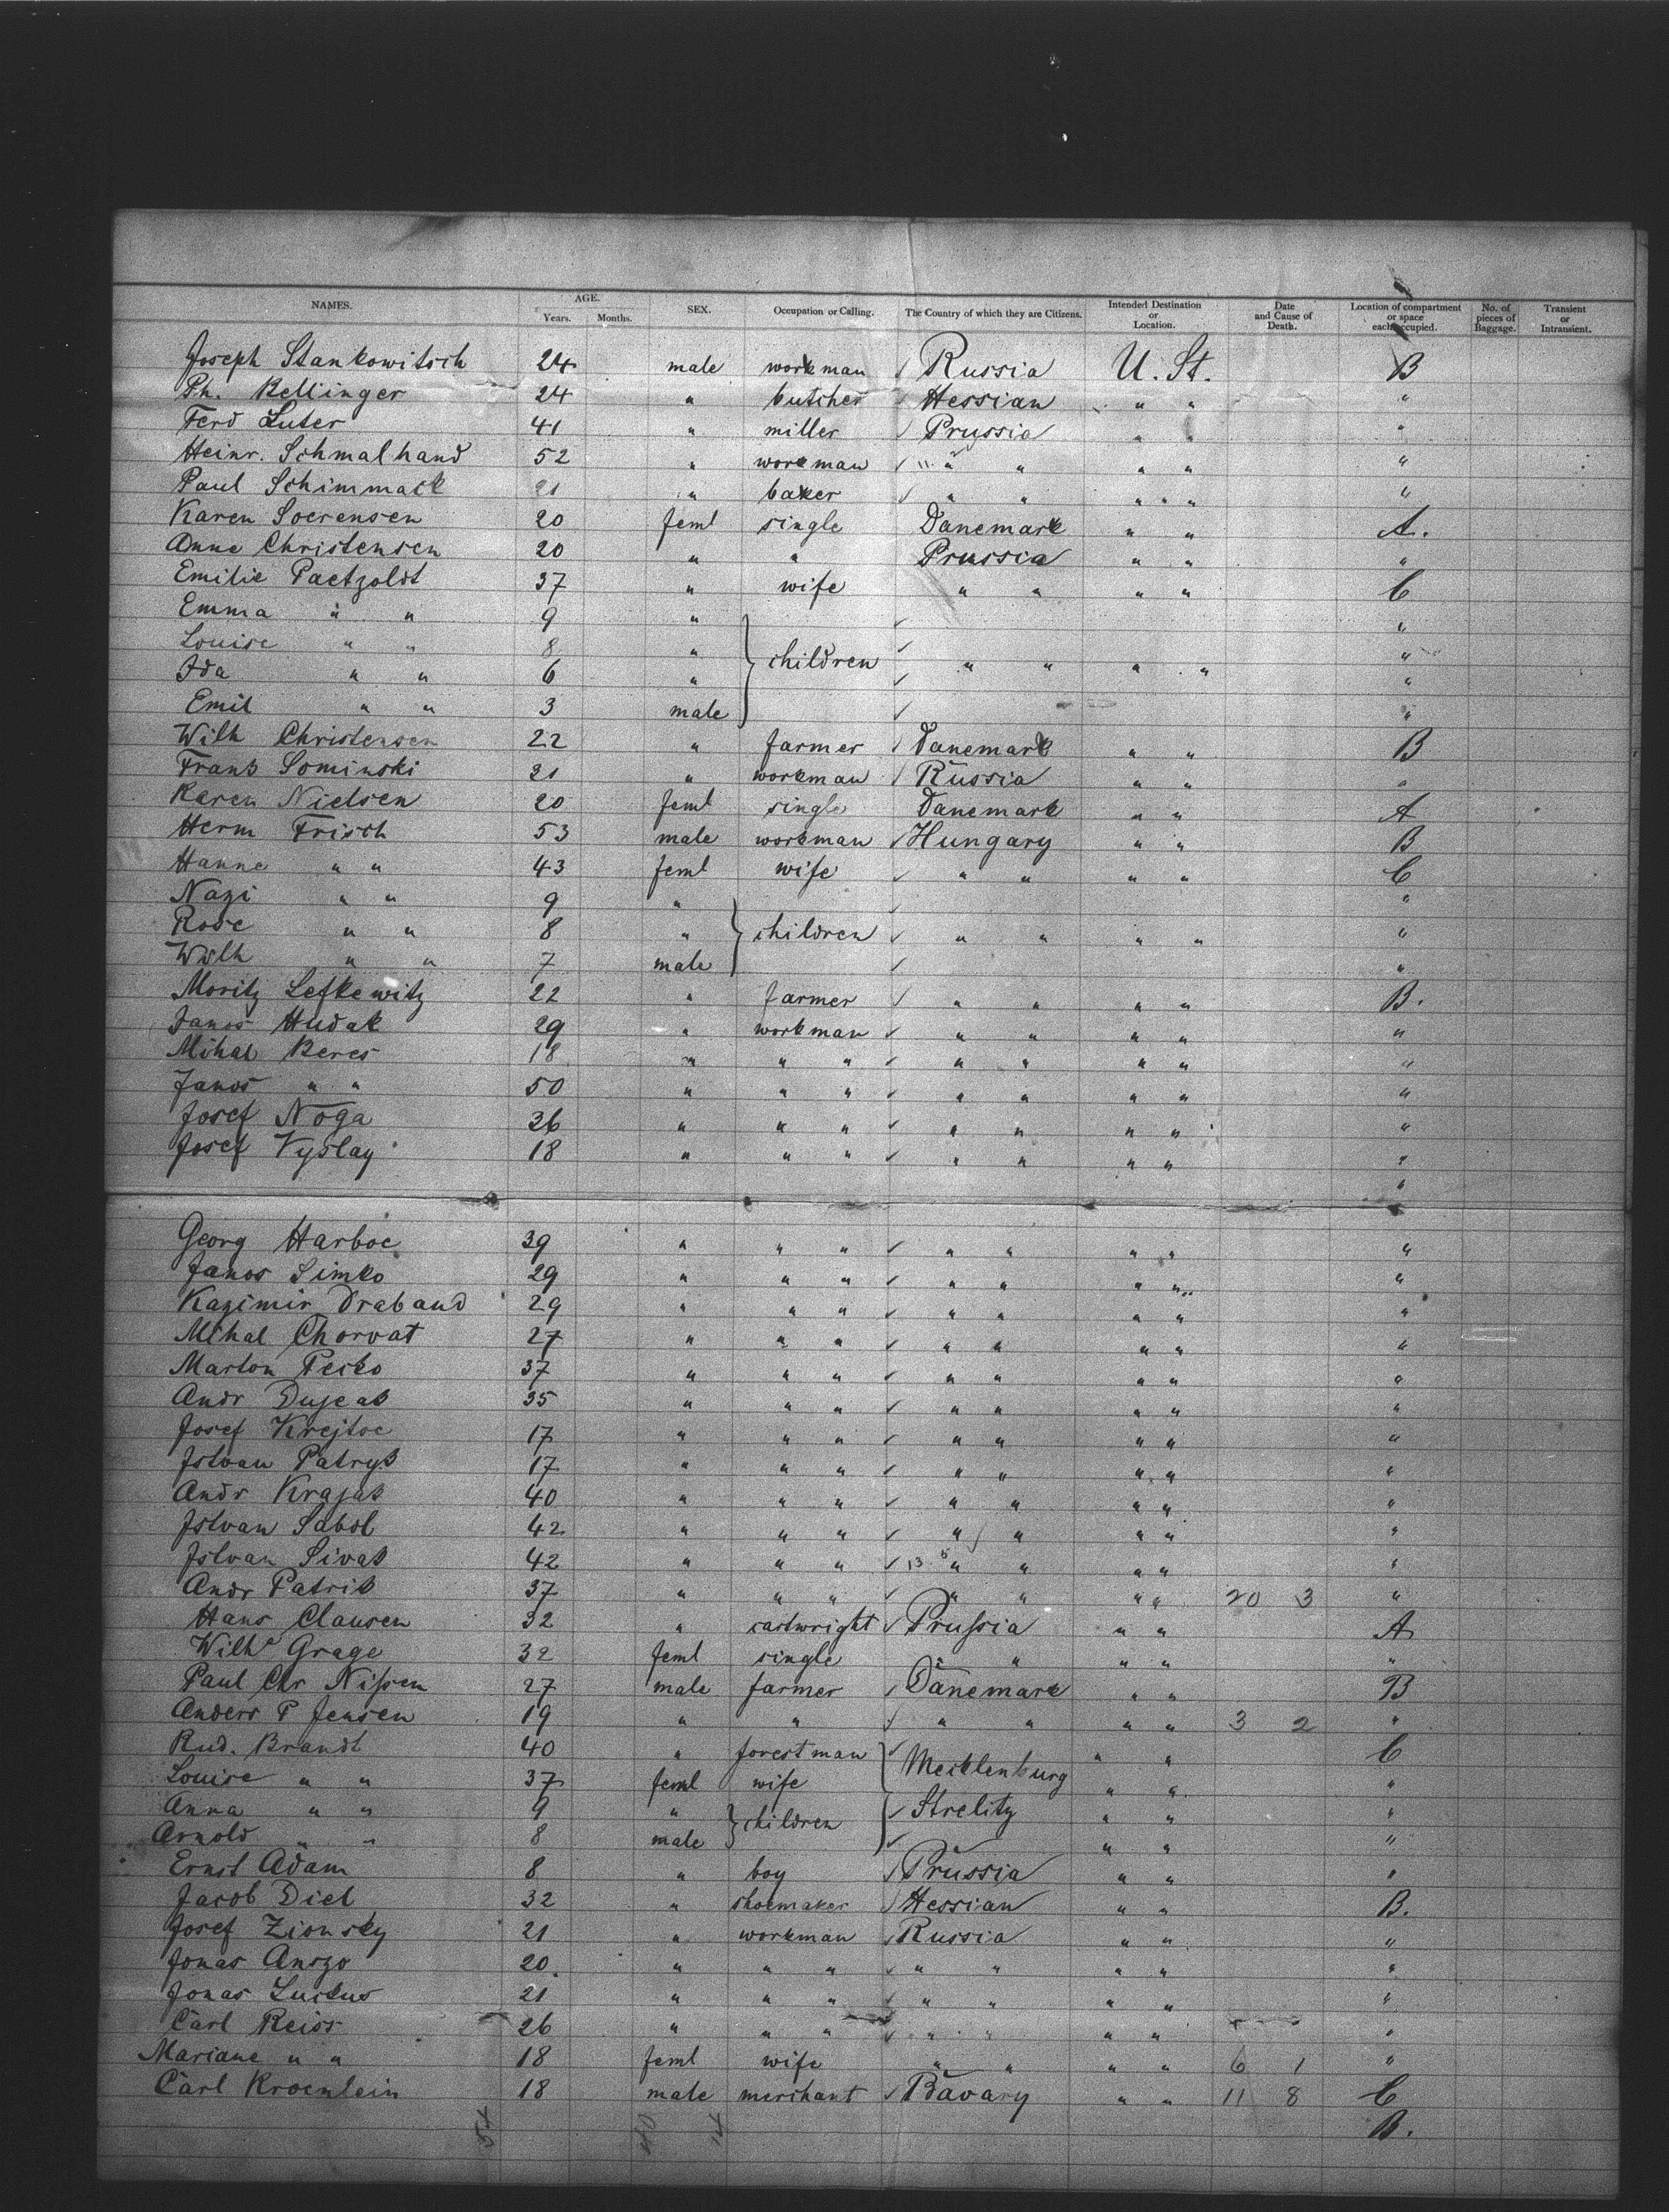 NAMES. AGE. Years. Months. SEX. Occupation or Calling. The Country of which they are Citizens. Intended Destination or Location. Date and Cause of Death. Location of compartment or space each occupied. No. of pieces of Baggage. Transient or Intransient.
Joseph Stankowitsch 24 male workman ✓ Russia U. St. B
Ph. Rellinger 24 " butcher ✓ Hessian " " "
Ferd Luter 41 " miller ✓ Prussia " " "
Heinr. Schmalhand 52 " workman ✓ 11 " " " " "
Paul Schimmack 21 " baker ✓ " " " " "
Karen Soerensen 20 feml single Danemark " " A.
Anne Christensen 20 " " Prussia " " "
Emilie Paetzoldt 37 " wife " " " " C
Emma " " 9 " ✓ "
Louise " " 8 " children ✓ " " " " "
Ida " " 6 " ✓ "
Emil " " 3 male ✓ "
Wilh Christensen 22 " farmer ✓ Danemark " " B
Frans Sominski 21 " workman ✓ Russia " " "
Karen Nielsen 20 feml single Danemark " " A
Herm Frisch 53 male workman ✓ Hungary " " B
Hanne " " 43 feml wife ✓ " " " " C
Nazi " " 9 " ✓ "
Rose " " 8 " children ✓ " " " " "
Wilh " " 7 male ✓ "
Moritz Lefkewitz 22 " farmer ✓ " " " " B.
Janos Hudak 29 " workman ✓ " " " " "
Mihal Beres 18 " " " ✓ " " " " "
Janos " " 50 " " " ✓ " " " " "
Josef Noga 36 " " " ✓ " " " " "
Josef Vyslay 18 " " " ✓ " " " " "
"
Georg Harboe 39 " " " ✓ " " " " "
Janos Simko 29 " " " ✓ " " " " "
Kazimir Draband 29 " " " ✓ " " " " "
Mihal Chorvat 27 " " " ✓ " " " " "
Marton Pesko 37 " " " ✓ " " " " "
Andr Dujcak 35 " " " ✓ " " " " "
Josef Krejtsc 17 " " " ✓ " " " " "
Istvan Patryk 17 " " " ✓ " " " " "
Andr Krajak 40 " " " ✓ " " " " "
Istvan Sabol 42 " " " ✓ " " " " "
Istvan Sivak 42 " " " ✓ 13 " " " " "
Andr Patrik 37 " " " ✓ " " " " 20 3 "
Hans Clausen 32 " cartwright ✓ Prussia " " A
Wilhe Grage 32 feml single " " " " "
Paul Chr Nissen 27 male farmer ✓ Danemark " " B
Anders P Jensen 19 " " ✓ " " " " 3 2 "
Rud. Brandt 40 " forestman ✓ Mecklenburg " " C
Louise " " 37 feml wife " " "
Anna " " 9 " children ✓ Strelitz " " "
Arnold " " 8 male ✓ " " "
Ernst Adam 8 " boy ✓ Prussia " " "
Jacob Diel 32 " shoemaker ✓ Hessian " " B.
Josef Zionsky 21 " workman ✓ Russia " " "
Jonas Anszo 20 " " " ✓ " " " " "
Jonas Luckus 21 " " " ✓ " " " " "
Carl Reiss 26 " " " ✓ " " " " "
Mariane " " 18 feml wife " " " " 6 1 "
Carl Kroenlein 18 male merchant ✓ Bavary " " 11 8 C
B.